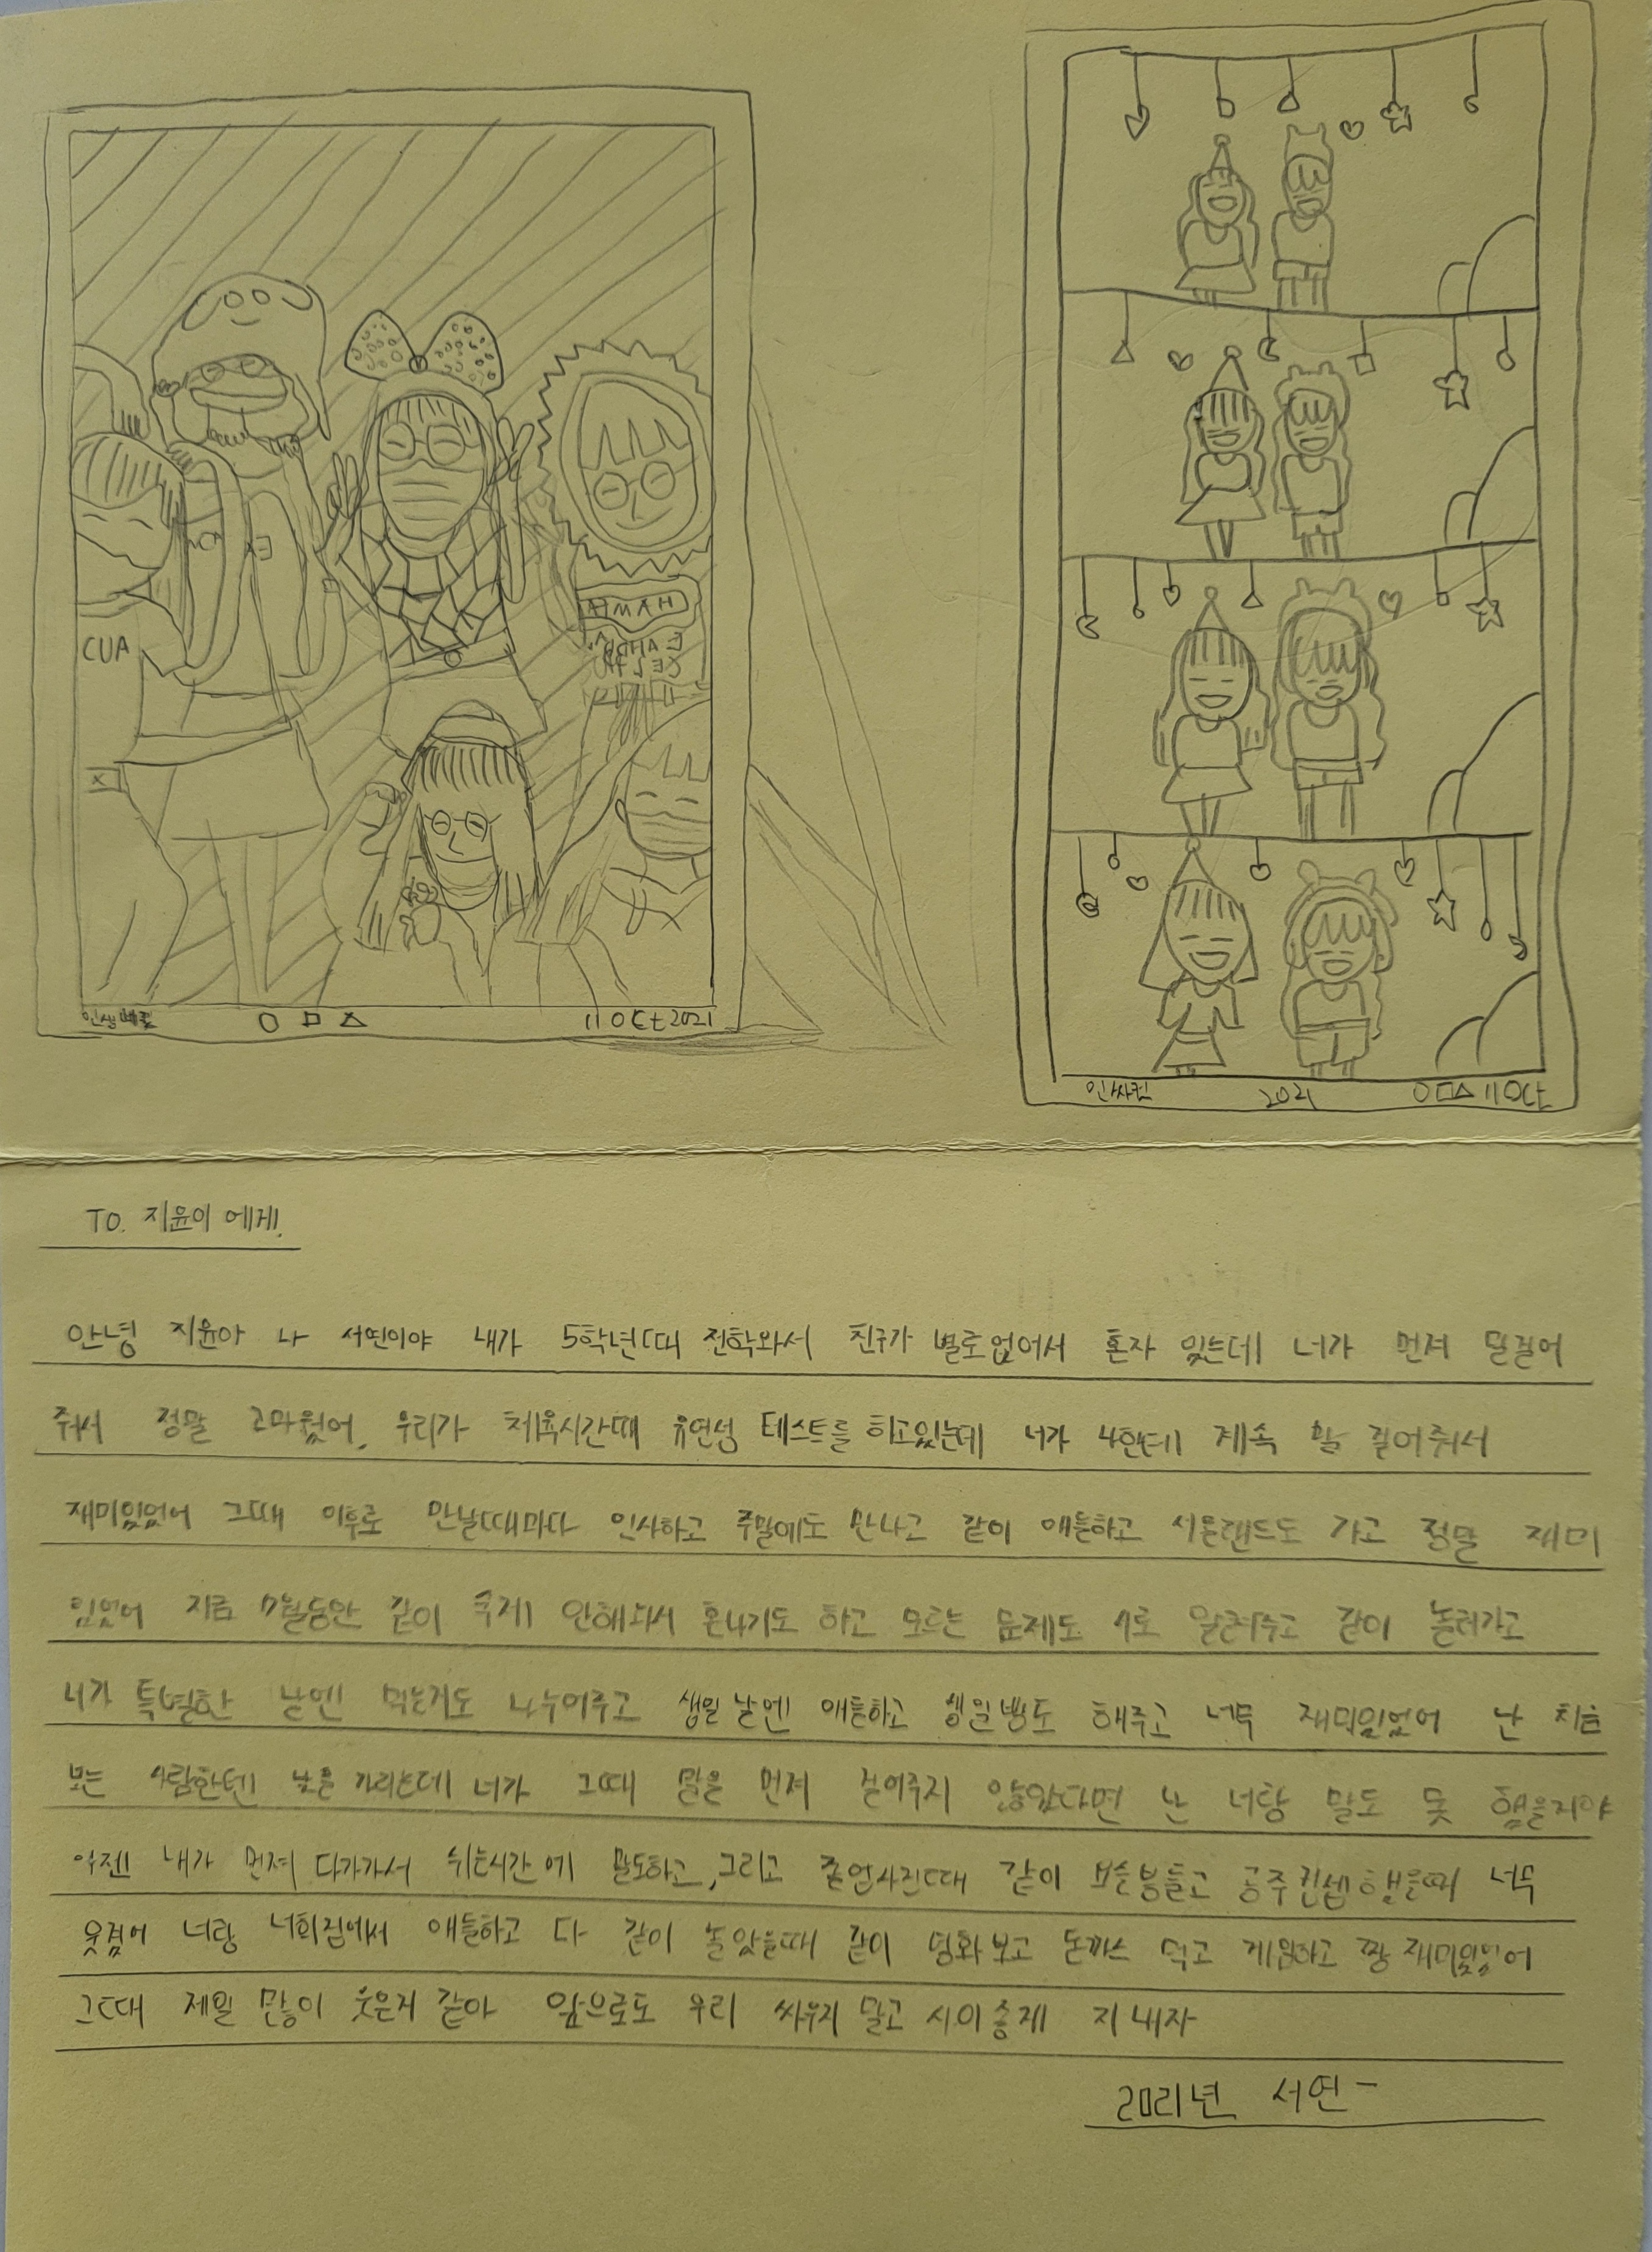 CUA
HAWAI
X
인생네컷 11 Oct 2021
인싸컷 2021
TO. 지윤이 에게.
안녕 지윤아 나 서연이야 내가 5학년때 전학와서 친구가 별로없어서 혼자 있는데 너가 먼저 말걸어
줘서 정말 고마웠어. 우리가 체육시간때 유연성 테스트를 하고있는데 너가 나한테 계속 말 걸어줘서
재미있었어 그때 이후로 만날때마다 인사하고 주말에도 만나고 같이 애들하고 서울랜드도 가고 정말 재미
있었어 지금 7월동안 같이 숙제 안해와서 혼나기도 하고 모르는 문제도 서로 알려주고 같이 놀러가고
너가 특별한 날엔 먹는거도 나누어주고 생일 날엔 애들하고 생일빵도 해주고 너무 재미있었어 난 처음
보는 사람한텐 낯을 가리는데 너가 그때 말을 먼저 걸어주지 않았다면 난 너랑 말도 못 했을지야
이젠 내가 먼저 다가가서 쉬는시간에 말도하고, 그리고 졸업사진때 같이 요술봉들고 공주컨셉했을때 너무
웃겼어 너랑 너희집에서 애들하고 다 같이 놀았을때 같이 영화보고 돈까스 먹고 게임하고 짱 재미있었어
그때 제일 많이 웃은거 같아 앞으로도 우리 싸우지 말고 사이좋게 지내자
2021년 서연-